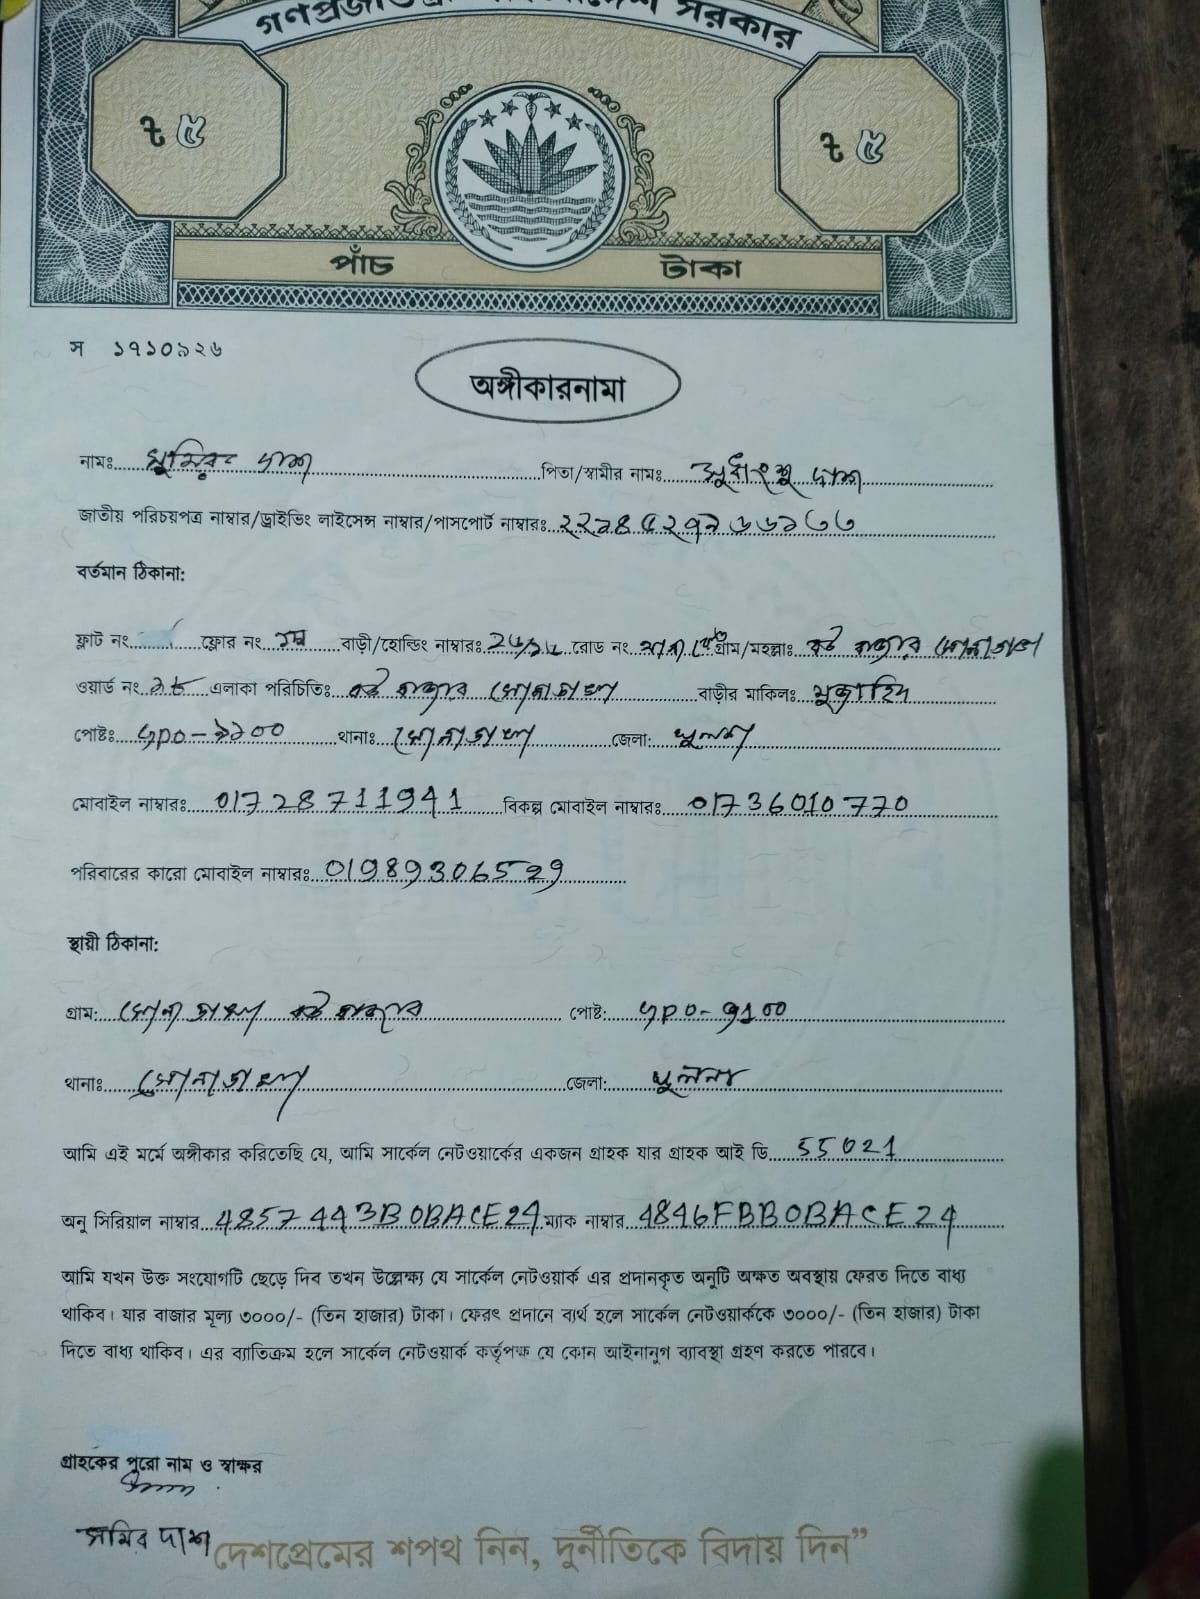 সরকার
৳ ৫ ৳ ৫
পাঁচ টাকা
স ১৭১০৯২৬
অঙ্গীকারনামা
নামঃ দাশ পিতা/স্বামীর নামঃ সুধাংশু দাশ
জাতীয় পরিচয়পত্র নাম্বার/ড্রাইভিং লাইসেন্স নাম্বার/পাসপোর্ট নাম্বারঃ
বর্তমান ঠিকানা:
ফ্লাট নং ফ্লোর নং বাড়ী/হোল্ডিং নাম্বারঃ রোড নং গ্রাম/মহল্লাঃ বাজার
ওয়ার্ড নং এলাকা পরিচিতিঃ বাজার সোনাডাঙ্গা বাড়ীর মাকিলঃ মুজাহিদ
পোষ্টঃ GPO-৯১০০ থানাঃ সোনাডাঙ্গা জেলা: খুলনা
মোবাইল নাম্বারঃ 01728711941 বিকল্প মোবাইল নাম্বারঃ 01736010770
পরিবারের কারো মোবাইল নাম্বারঃ 01989306529
স্থায়ী ঠিকানা:
গ্রাম: সোনাডাঙ্গা বাজার পোষ্ট: GPO-9100
থানাঃ সোনাডাঙ্গা জেলা: খুলনা
আমি এই মর্মে অঙ্গীকার করিতেছি যে, আমি সার্কেল নেটওয়ার্কের একজন গ্রাহক যার গ্রাহক আই ডি 55021
অনু সিরিয়াল নাম্বার 4857443BOBACE24 ম্যাক নাম্বার 4846FBBOBACE24
আমি যখন উক্ত সংযোগটি ছেড়ে দিব তখন উল্লেক্ষ্য যে সার্কেল নেটওয়ার্ক এর প্রদানকৃত অনুটি অক্ষত অবস্থায় ফেরত দিতে বাধ্য
থাকিব। যার বাজার মূল্য ৩০০০/- (তিন হাজার) টাকা। ফেরৎ প্রদানে ব্যর্থ হলে সার্কেল নেটওয়ার্ককে ৩০০০/- (তিন হাজার) টাকা
দিতে বাধ্য থাকিব। এর ব্যাতিক্রম হলে সার্কেল নেটওয়ার্ক কর্তৃপক্ষ যে কোন আইনানুগ ব্যাবস্থা গ্রহণ করতে পারবে।
গ্রাহকের পুরো নাম ও স্বাক্ষর
সমির দাশ
দেশপ্রেমের শপথ নিন, দুর্নীতিকে বিদায় দিন”